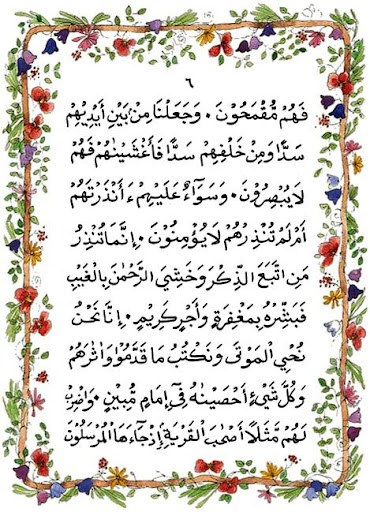 ٦
فَهُمْ مُّقْمَحُوْنَ ۰ وَجَعَلْنَا مِنْۢ بَيْنِ اَيْدِيْهِمْ
سَدًّا وَّمِنْ خَلْفِهِمْ سَدًّا فَاَغْشَيْنٰهُمْ فَهُمْ
لَا يُبْصِرُوْنَ ۰ وَسَوَآءٌ عَلَيْهِمْ ءَاَنْذَرْتَهُمْ
اَمْ لَمْ تُنْذِرْهُمْ لَا يُؤْمِنُوْنَ ۰ اِنَّمَا تُنْذِرُ
مَنِ اتَّبَعَ الذِّكْرَ وَخَشِيَ الرَّحْمٰنَ بِالْغَيْبِ
فَبَشِّرْهُ بِمَغْفِرَةٍ وَّاَجْرٍ كَرِيْمٍ ۰ اِنَّا نَحْنُ
نُحْيِ الْمَوْتٰى وَنَكْتُبُ مَا قَدَّمُوْا وَاٰثَرَهُمْ
وَكُلَّ شَيْءٍ اَحْصَيْنٰهُ فِيْٓ اِمَامٍ مُّبِيْنٍ ۰ وَاضْرِبْ
لَهُمْ مَّثَلًا اَصْحٰبَ الْقَرْيَةِ اِذْ جَآءَهَا الْمُرْسَلُوْنَ